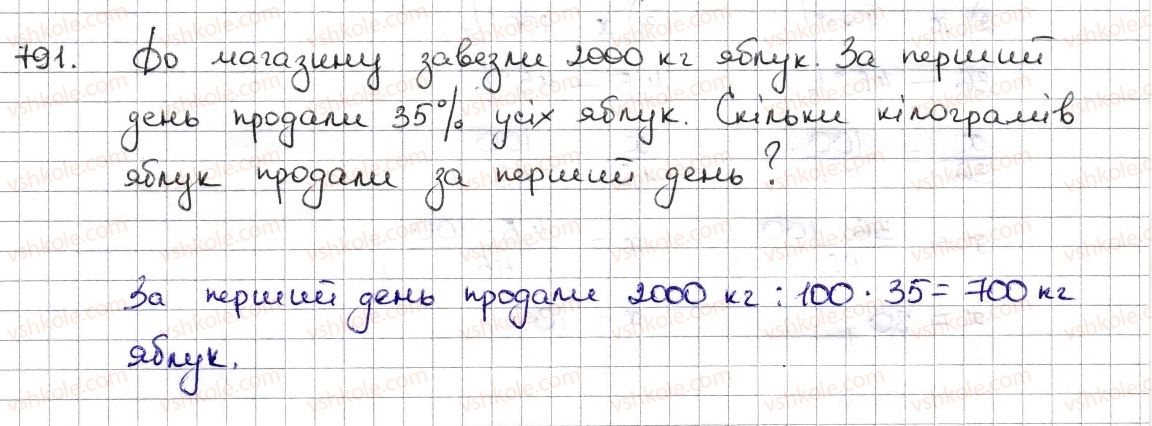 791. До магазину завезли 2000 кг яблук. За перший
день продали 35% усіх яблук. Скільки кілограмів
яблук продали за перший день?
За перший день продали 2000 кг : 100 · 35 = 700 кг
яблук.